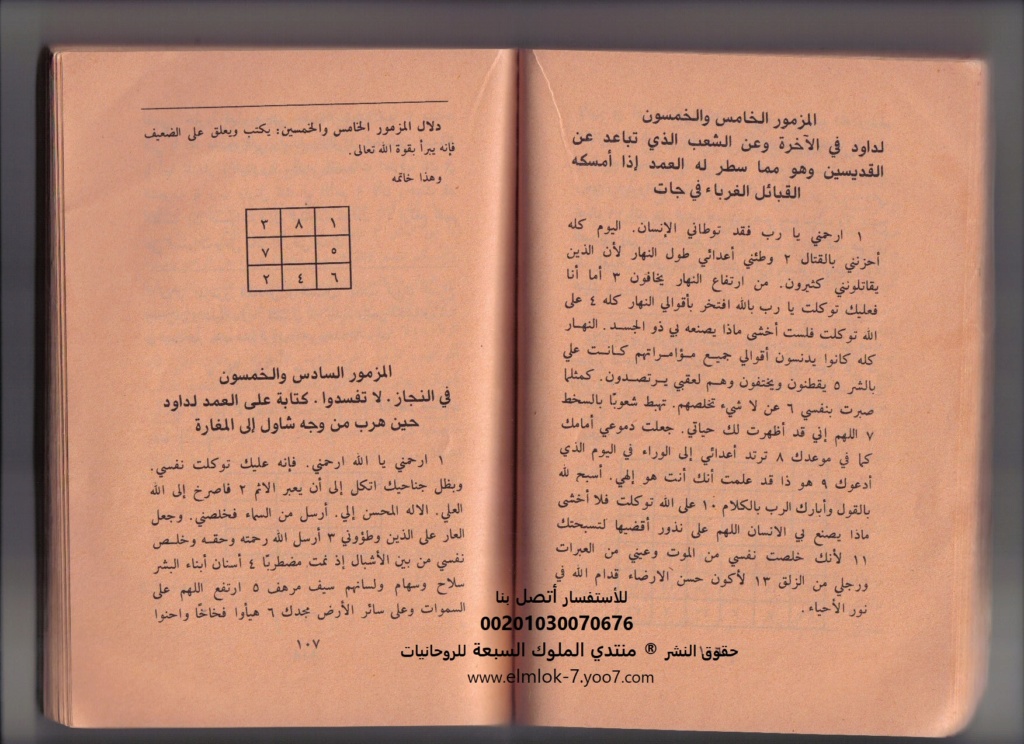 المزمور الخامس والخمسون
لداود في الآخرة وعن الشعب الذي تباعد عن
القديسين وهو مما سطر له العمد إذا أمسكه
القبائل الغرباء في جات
١ ارحمني يا رب فقد توطاني الإنسان. اليوم كله
أحزنني بالقتال ٢ وطئني أعدائي طول النهار لأن الذين
يقاتلونني كثيرون. من ارتفاع النهار يخافون ٣ أما أنا
فعليك توكلت يا رب بالله افتخر بأقوالي النهار كله ٤ على
الله توكلت فلست أخشى ماذا يصنعه بي ذو الجسد. النهار
كله كانوا يدنسون أقوالي جميع مؤامراتهم كانت علي
بالشر ٥ يقطنون ويختفون وهم لعقبي يرتصدون. كمثلما
صبرت بنفسي ٦ عن لا شيء تخلصهم. تهبط شعوبًا بالسخط
٧ اللهم إني قد أظهرت لك حياتي. جعلت دموعي أمامك
كما في موعدك ٨ ترتد أعدائي إلى الوراء في اليوم الذي
أدعوك ٩ هو ذا قد علمت أنك أنت هو إلهي. أسبح لله
بالقول وأبارك الرب بالكلام ١٠ على الله توكلت فلا أخشى
ماذا يصنع بي الانسان اللهم على نذور أقضيها لتسبحتك
١١ لأنك خلصت نفسي من الموت وعيني من العبرات
ورجلي من الزلق ١٣ لأكون حسن الارضاء قدام الله في
نور الأحياء.
دلال المزمور الخامس والخمسين: يكتب ويعلق على الضعيف
فإنه يبرأ بقوة الله تعالى.
وهذا خاتمه
١ ٨ ٣
٥ ٧
٦ ٤ ٢
المزمور السادس والخمسون
في النجاز. لا تفسدوا. كتابة على العمد لداود
حين هرب من وجه شاول إلى المغارة
١ ارحمني يا الله ارحمني. فإنه عليك توكلت نفسي.
وبظل جناحيك اتكل إلى أن يعبر الاثم ٢ فاصرخ إلى الله
العلي. الاله المحسن إلي. أرسل من السماء فخلصني. وجعل
العار على الذين وطؤوني ٣ أرسل الله رحمته وحقه وخلص
نفسي من بين الأشبال إذ نمت مضطربًا ٤ أسنان أبناء البشر
سلاح وسهام ولسانهم سيف مرهف ٥ ارتفع اللهم على
السموات وعلى سائر الأرض مجدك ٦ هيأوا فخاخًا واحنوا
١٠٧
للأستفسار أتصل بنا
00201030070676
حقوق النشر ® منتدي الملوك السبعة للروحانيات
www.elmlok-7.yoo7.com